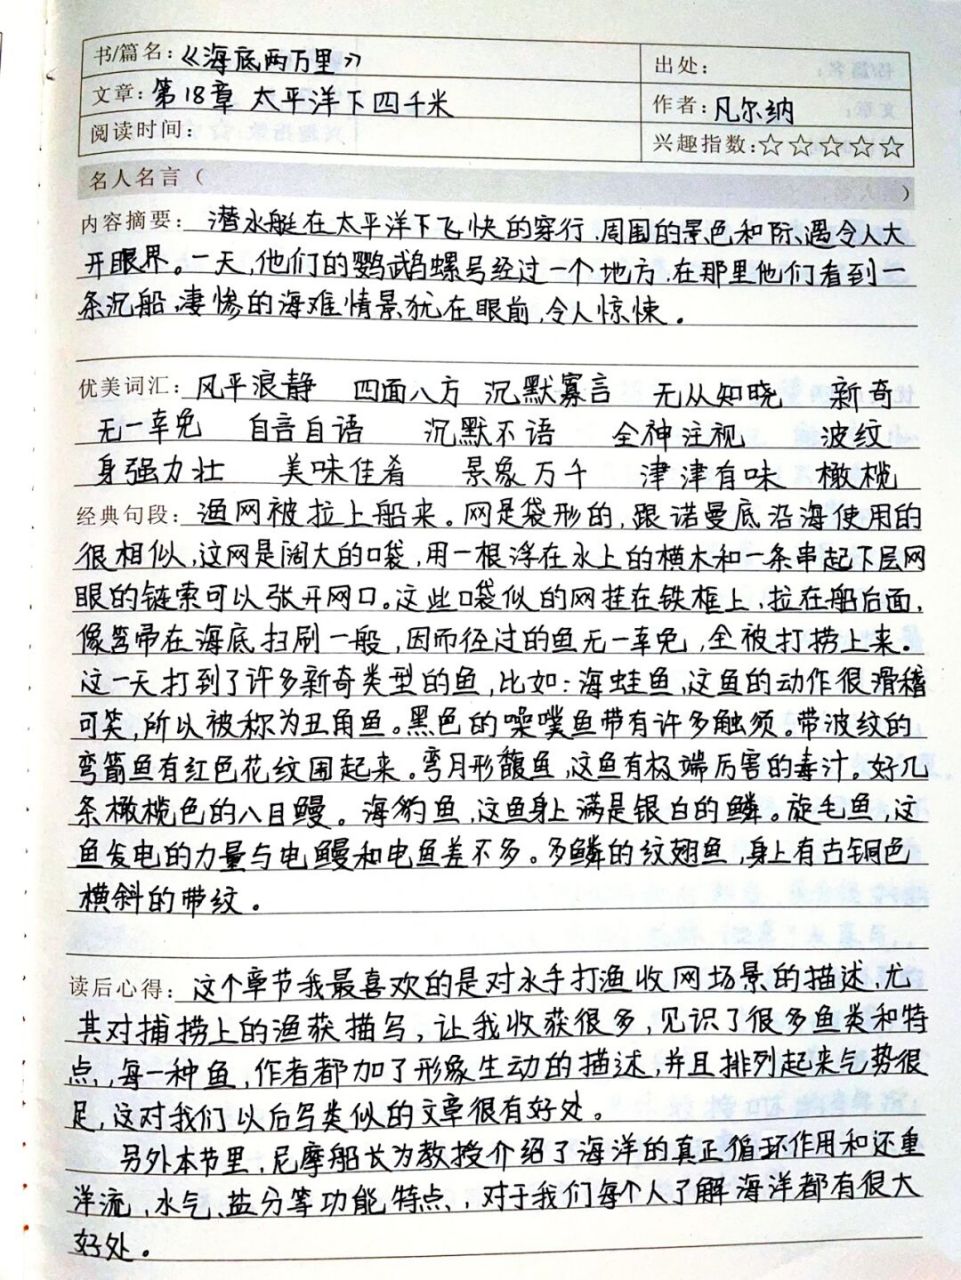 书/篇名：《海底两万里》 出处：
文章：第18章 太平洋下四千米 作者：凡尔纳
阅读时间： 兴趣指数：☆☆☆☆☆
名人名言（ ）
内容摘要：潜水艇在太平洋下飞快的穿行，周围的景色和际遇令人大
开眼界。一天，他们的鹦鹉螺号经过一个地方，在那里他们看到一
条沉船，凄惨的海难情景犹在眼前，令人惊悚。
优美词汇：风平浪静 四面八方 沉默寡言 无从知晓 新奇
无一幸免 自言自语 沉默不语 全神注视 波纹
身强力壮 美味佳肴 景象万千 津津有味 橄榄
经典句段：渔网被拉上船来。网是袋形的，跟诺曼底沿海使用的
很相似，这网是阔大的口袋，用一根浮在水上的横木和一条串起下层网
眼的链索可以张开网口。这些口袋似的网挂在铁框上，拉在船后面，
像笤帚在海底扫刷一般，因而经过的鱼无一幸免，全被打捞上来。
这一天打到了许多新奇类型的鱼，比如：海蛙鱼，这鱼的动作很滑稽
可笑，所以被称为丑角鱼。黑色的噪噗鱼带有许多触须。带波纹的
弯箭鱼有红色花纹围起来。弯月形馥鱼，这鱼有极端厉害的毒汁。好几
条橄榄色的八目鳗。海豹鱼，这鱼身上满是银白的鳞。旋毛鱼，这
鱼发电的力量与电鳗和电鱼差不多。多鳞的纹翅鱼，身上有古铜色
横斜的带纹。
读后心得：这个章节我最喜欢的是对水手打渔收网场景的描述，尤
其对捕捞上的渔获描写，让我收获很多，见识了很多鱼类和特
点，每一种鱼，作者都加了形象生动的描述，并且排列起来气势很
足，这对我们以后写类似的文章很有好处。
另外本节里，尼摩船长为教授介绍了海洋的真正循环作用和还重
洋流，水气、盐分等功能特点，对于我们每个人了解海洋都有很大
好处。